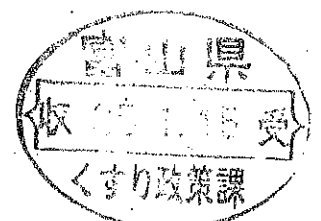 富山県
収 受
くすり政策課